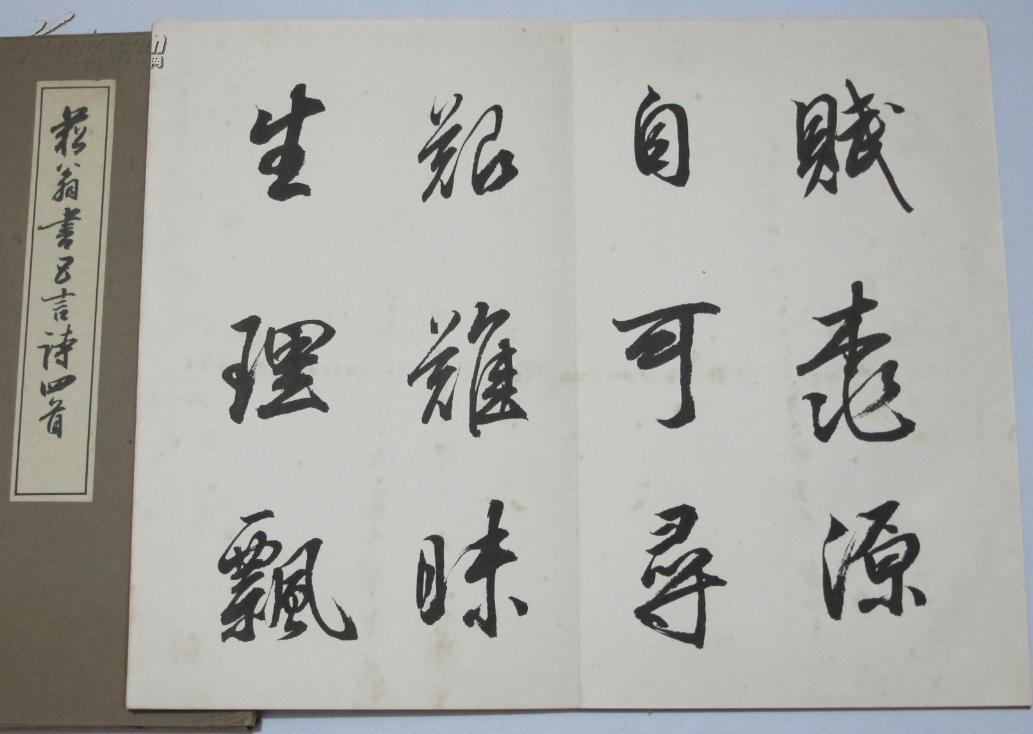 賦桃源
自可尋
艱難昧
生理飄
菘翁書五言詩四首